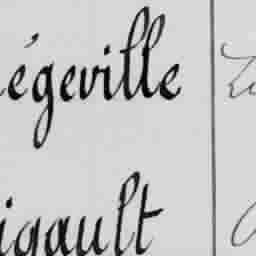 égeville
igault